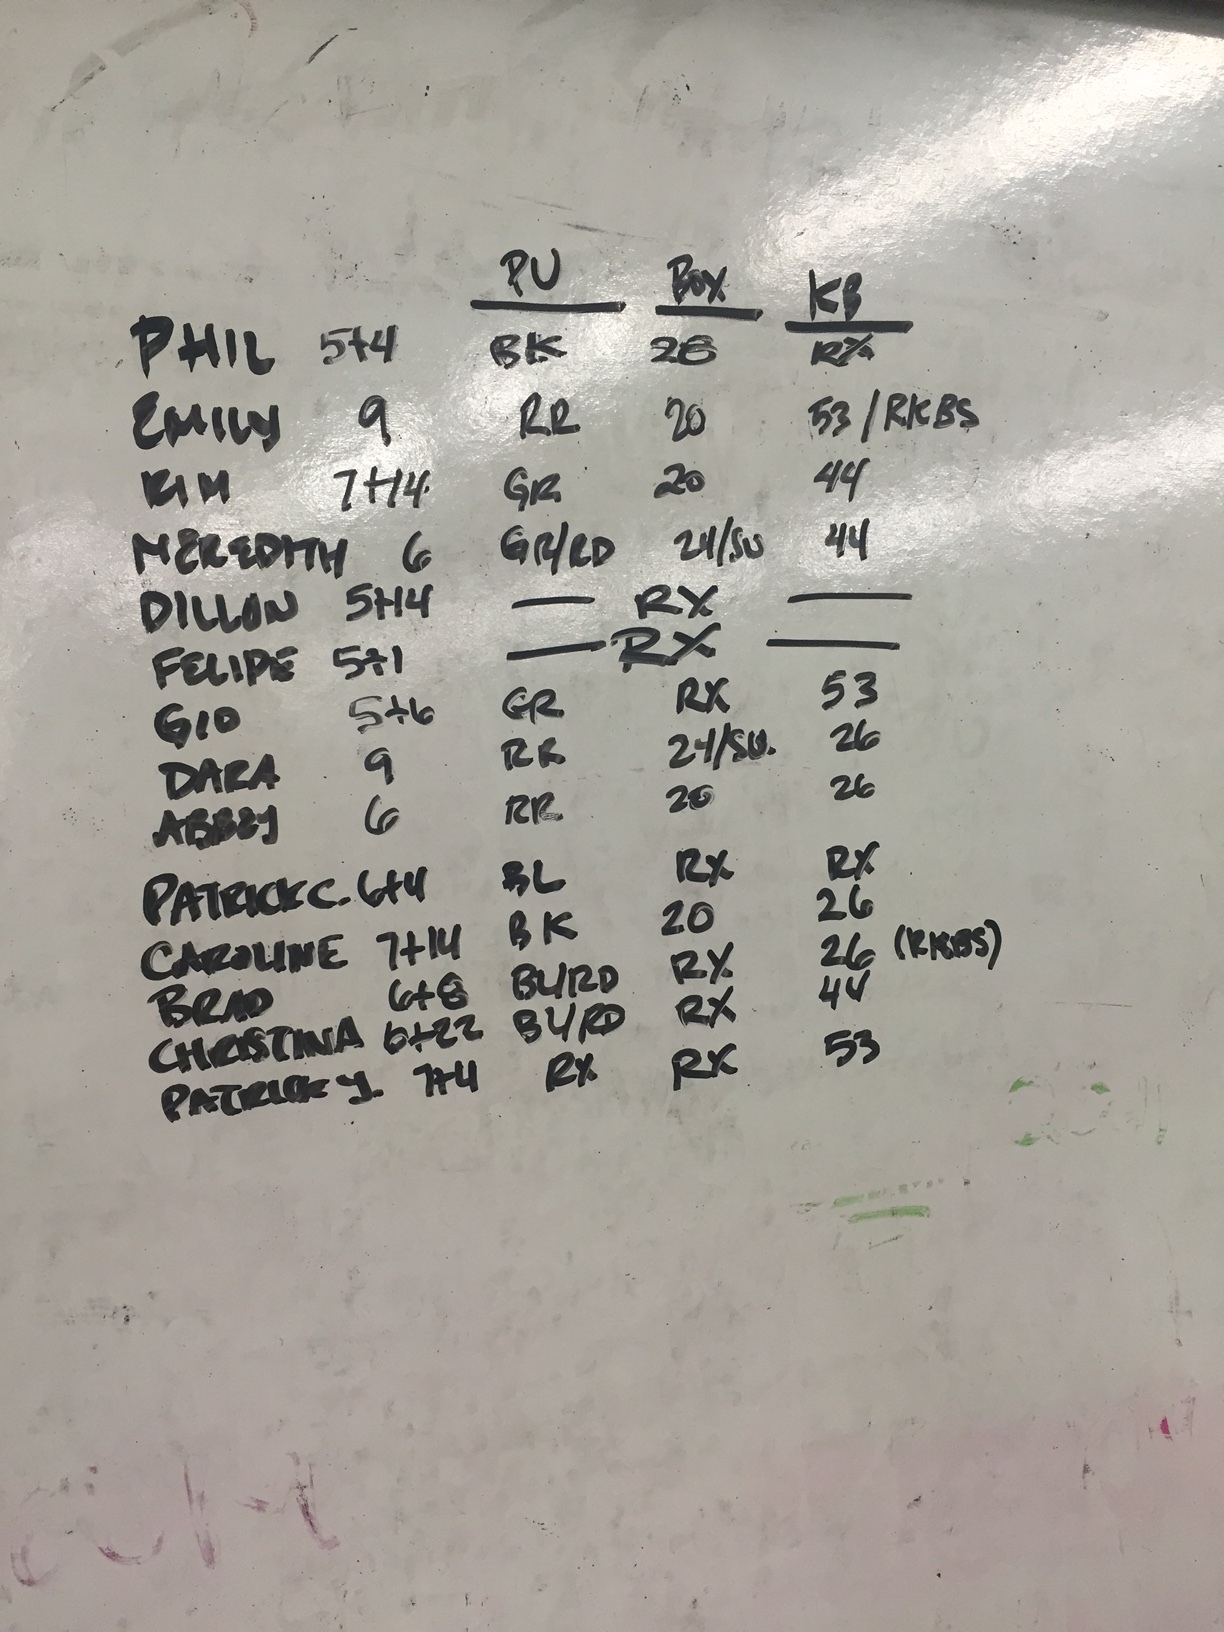 PU BOX KB
PHIL 5+4 BK 20 RX
EMILY 9 RR 20 53/RKBS
KIM 7+14 GR 20 44
MEREDITH 6 GR/RD 24/SU 44
DILLON 5+14 — RX —
FELIPE 5+1 — RX —
GIO 5+6 GR RX 53
DARA 9 RR 24/SU. 26
ABBEY 6 RR 20 26
PATRICK C. 6+4 BL RX RX
CAROLINE 7+14 BK 20 26
BRAD 6+8 BL/RD RX 26 (RKBS)
CHRISTINA 6+22 BL/RD RX 44
PATRICK Y. 7+4 RX RX 53